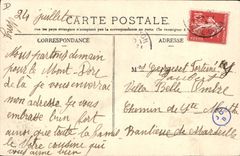 24 juillet
CARTE POSTALE
CORRESPONDANCE
ADRESSE
Nous partons demain
pour le Mont-Dore
de là je vous enverrai
mon adresse. Je vous
embrasse bien fort
ainsi que toute la famille
Votre cousine qui
vous aime bien
Villa Belle Ombre
Chemin de Ste Marthe
Banlieue de Marseille